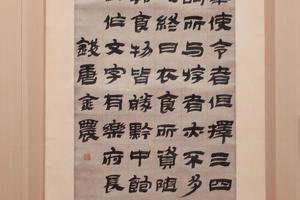 使令者但擇三四
所与游者大不多
終日衣食所資
食物皆勝黔中
作文字有樂府長
錢唐金農